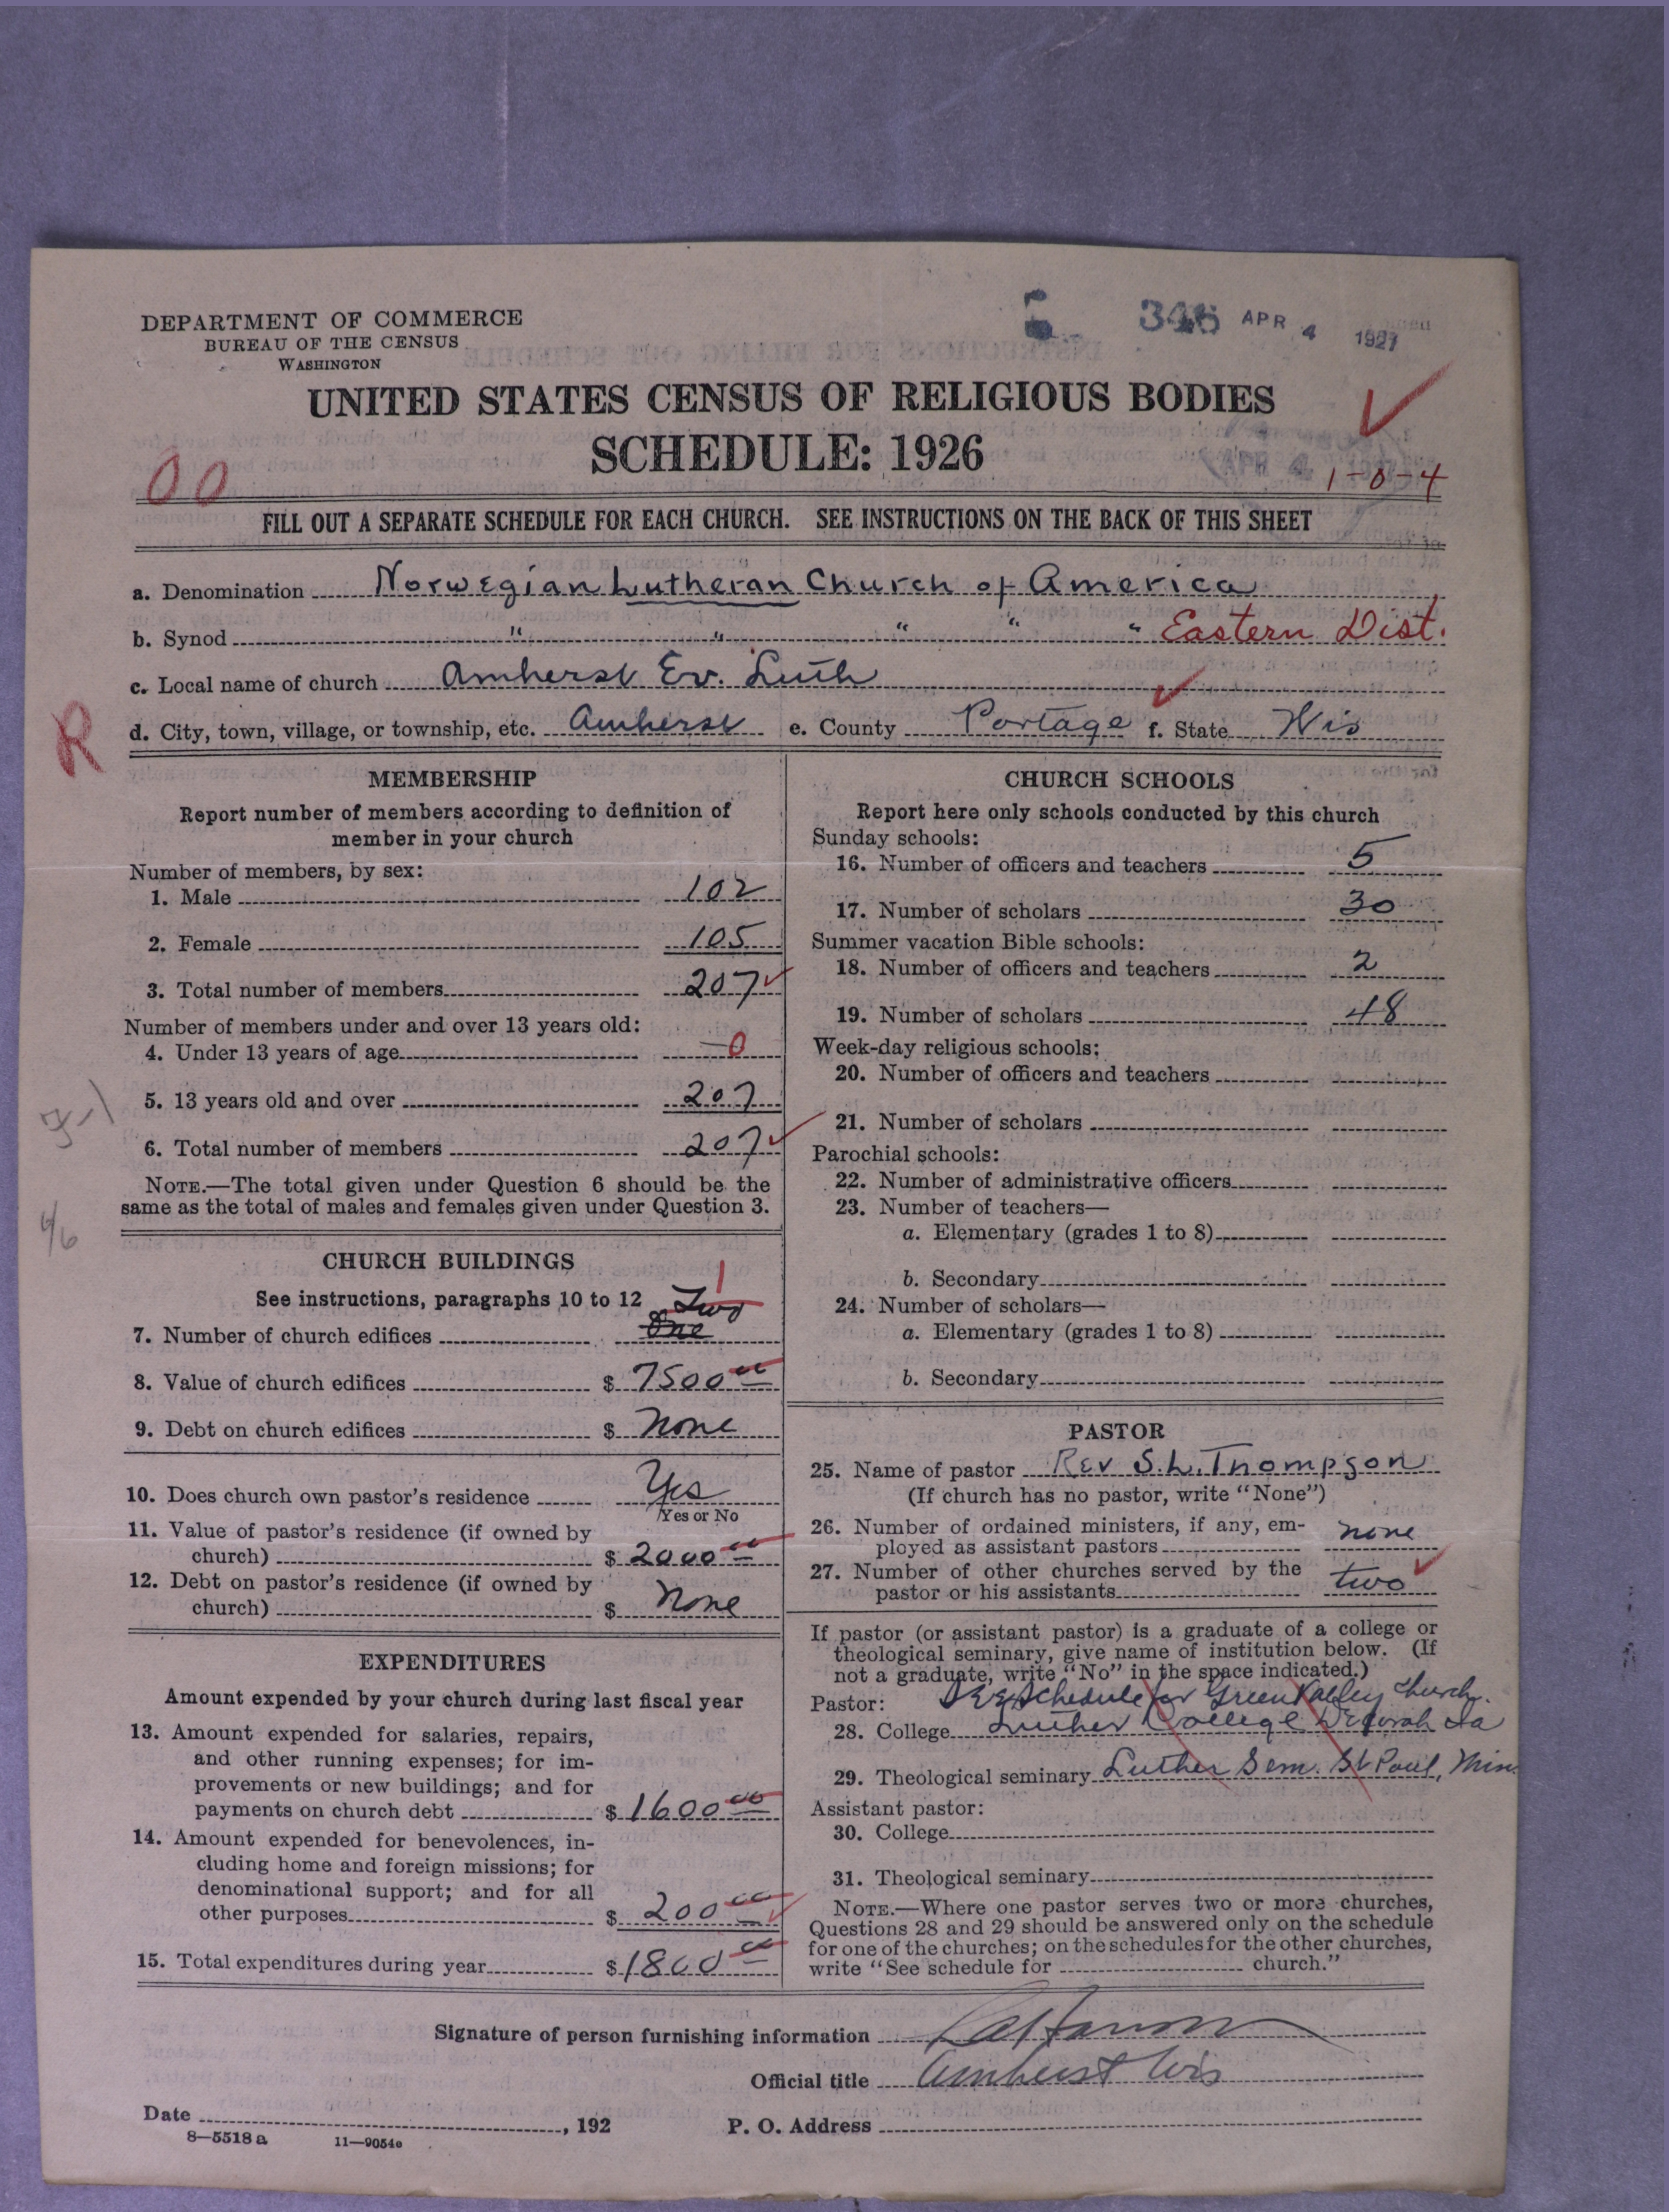 DEPARTMENT OF COMMERCE
BUREAU OF THE CENSUS
WASHINGTON
346 APR 4 1927
UNITED STATES CENSUS OF RELIGIOUS BODIES
SCHEDULE: 1926
APR 4
1-0-4
00
FILL OUT A SEPARATE SCHEDULE FOR EACH CHURCH. SEE INSTRUCTIONS ON THE BACK OF THIS SHEET
a. Denomination Norwegian Lutheran Church of America
b. Synod " " " " " Eastern Dist.
c. Local name of church Amherst Ev. Luth
R
d. City, town, village, or township, etc. Amherst e. County Portage f. State Wis
MEMBERSHIP
Report number of members according to definition of
member in your church
Number of members, by sex:
1. Male 102
2. Female 105
3. Total number of members 207
Number of members under and over 13 years old:
4. Under 13 years of age 0
5. 13 years old and over 207
6. Total number of members 207
NOTE.—The total given under Question 6 should be the
same as the total of males and females given under Question 3.
CHURCH BUILDINGS
1
See instructions, paragraphs 10 to 12 Two
7. Number of church edifices One
8. Value of church edifices $ 7500 00
9. Debt on church edifices $ None
10. Does church own pastor's residence Yes
Yes or No
11. Value of pastor's residence (if owned by
church) $ 2000 00
12. Debt on pastor's residence (if owned by
church) $ None
EXPENDITURES
Amount expended by your church during last fiscal year
13. Amount expended for salaries, repairs,
and other running expenses; for im-
provements or new buildings; and for
payments on church debt $ 1600 00
14. Amount expended for benevolences, in-
cluding home and foreign missions; for
denominational support; and for all
other purposes $ 200 00
15. Total expenditures during year $ 1800 00
CHURCH SCHOOLS
Report here only schools conducted by this church
Sunday schools:
16. Number of officers and teachers 5
17. Number of scholars 30
Summer vacation Bible schools:
18. Number of officers and teachers 2
19. Number of scholars 48
Week-day religious schools:
20. Number of officers and teachers
21. Number of scholars
Parochial schools:
22. Number of administrative officers
23. Number of teachers—
a. Elementary (grades 1 to 8)
b. Secondary
24. Number of scholars—
a. Elementary (grades 1 to 8)
b. Secondary
PASTOR
25. Name of pastor Rev S.L. Thompson
(If church has no pastor, write "None")
26. Number of ordained ministers, if any, em-
ployed as assistant pastors none
27. Number of other churches served by the
pastor or his assistants two
If pastor (or assistant pastor) is a graduate of a college or
theological seminary, give name of institution below. (If
not a graduate, write "No" in the space indicated.)
Pastor: See Schedule for Green Valley Church.
28. College Luther College Decorah Ia
29. Theological seminary Luther Sem. St Paul, Minn.
Assistant pastor:
30. College
31. Theological seminary
NOTE.—Where one pastor serves two or more churches,
Questions 28 and 29 should be answered only on the schedule
for one of the churches; on the schedules for the other churches,
write "See schedule for church."
Signature of person furnishing information
Official title Amherst Wis
Date , 192 P. O. Address
8—5518 a 11—9054e